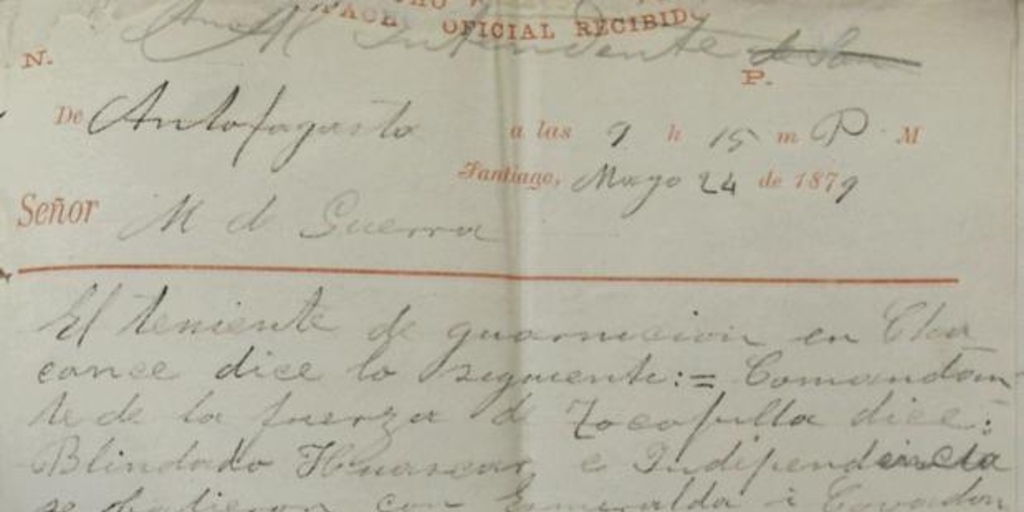 OFICIAL RECIBIDO
Al Intendente de San
N.
P.
De Antofagasta a las 9 h 15 m P. M
Santiago, Mayo 24 de 1879
Señor M de Guerra
El teniente de guarnicion en Cha
cance dice lo siguiente:= Comandan
te de la fuerza de Tocopilla dice:
Blindado Huascar e Independencia
se batieron con Esmeralda i Covadon